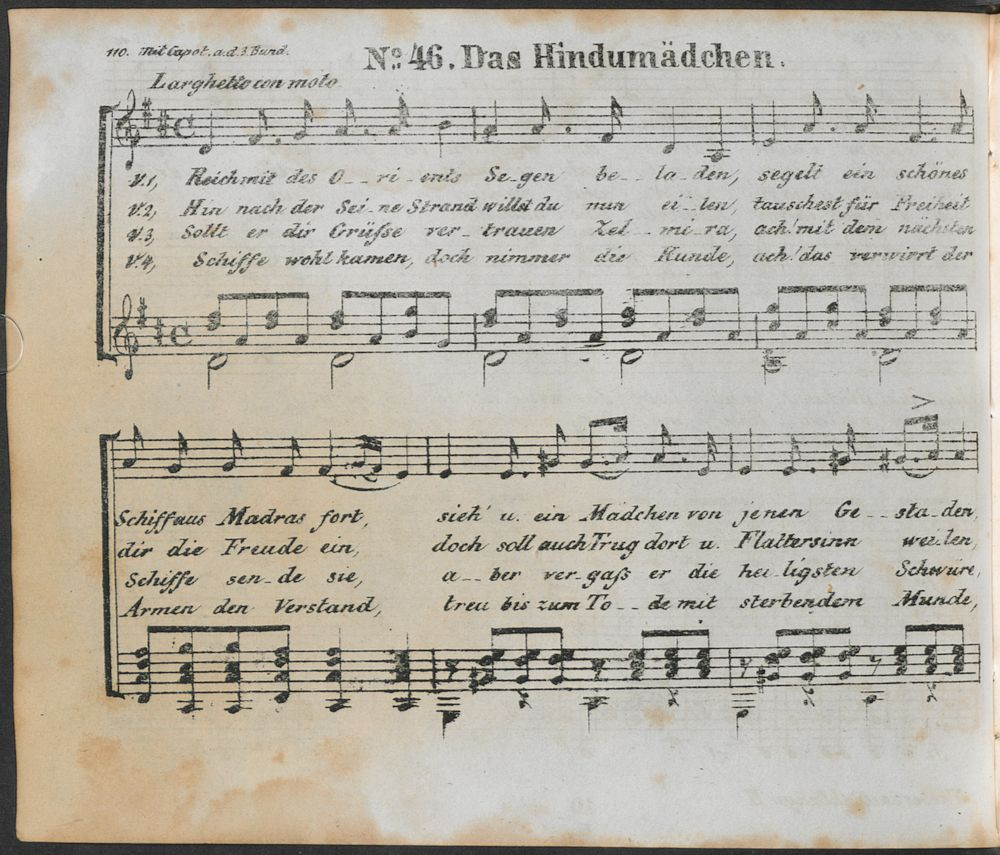 110. mit Capot. a.d. 3. Bund.
No. 46. Das Hindumädchen.
Larghetto con moto
V.1, Reich mit des O__ri_ents Se_gen be__la_den, segelt ein schönes
V.2, Hin nach der Sei_ne Strand willst du nun ei__len, tauschest für Freiheit
V.3, Sollt er dir Grüfse ver_trauen Zel_mi_ra, ach! mit dem nächsten
V.4, Schiffe wohl kamen, doch nimmer die Kunde, ach! das verwirrt der
Schiff aus Madras fort, sieh' u. ein Mädchen von jenen Ge__sta_den,
dir die Freude ein, doch soll auch Trug dort u. Flattersinn weilen,
Schiffe sen_de sie, a__ber ver_gafs er die hei_ligsten Schwüre,
Armen den Verstand, treu bis zum To__de mit sterbendem Munde,